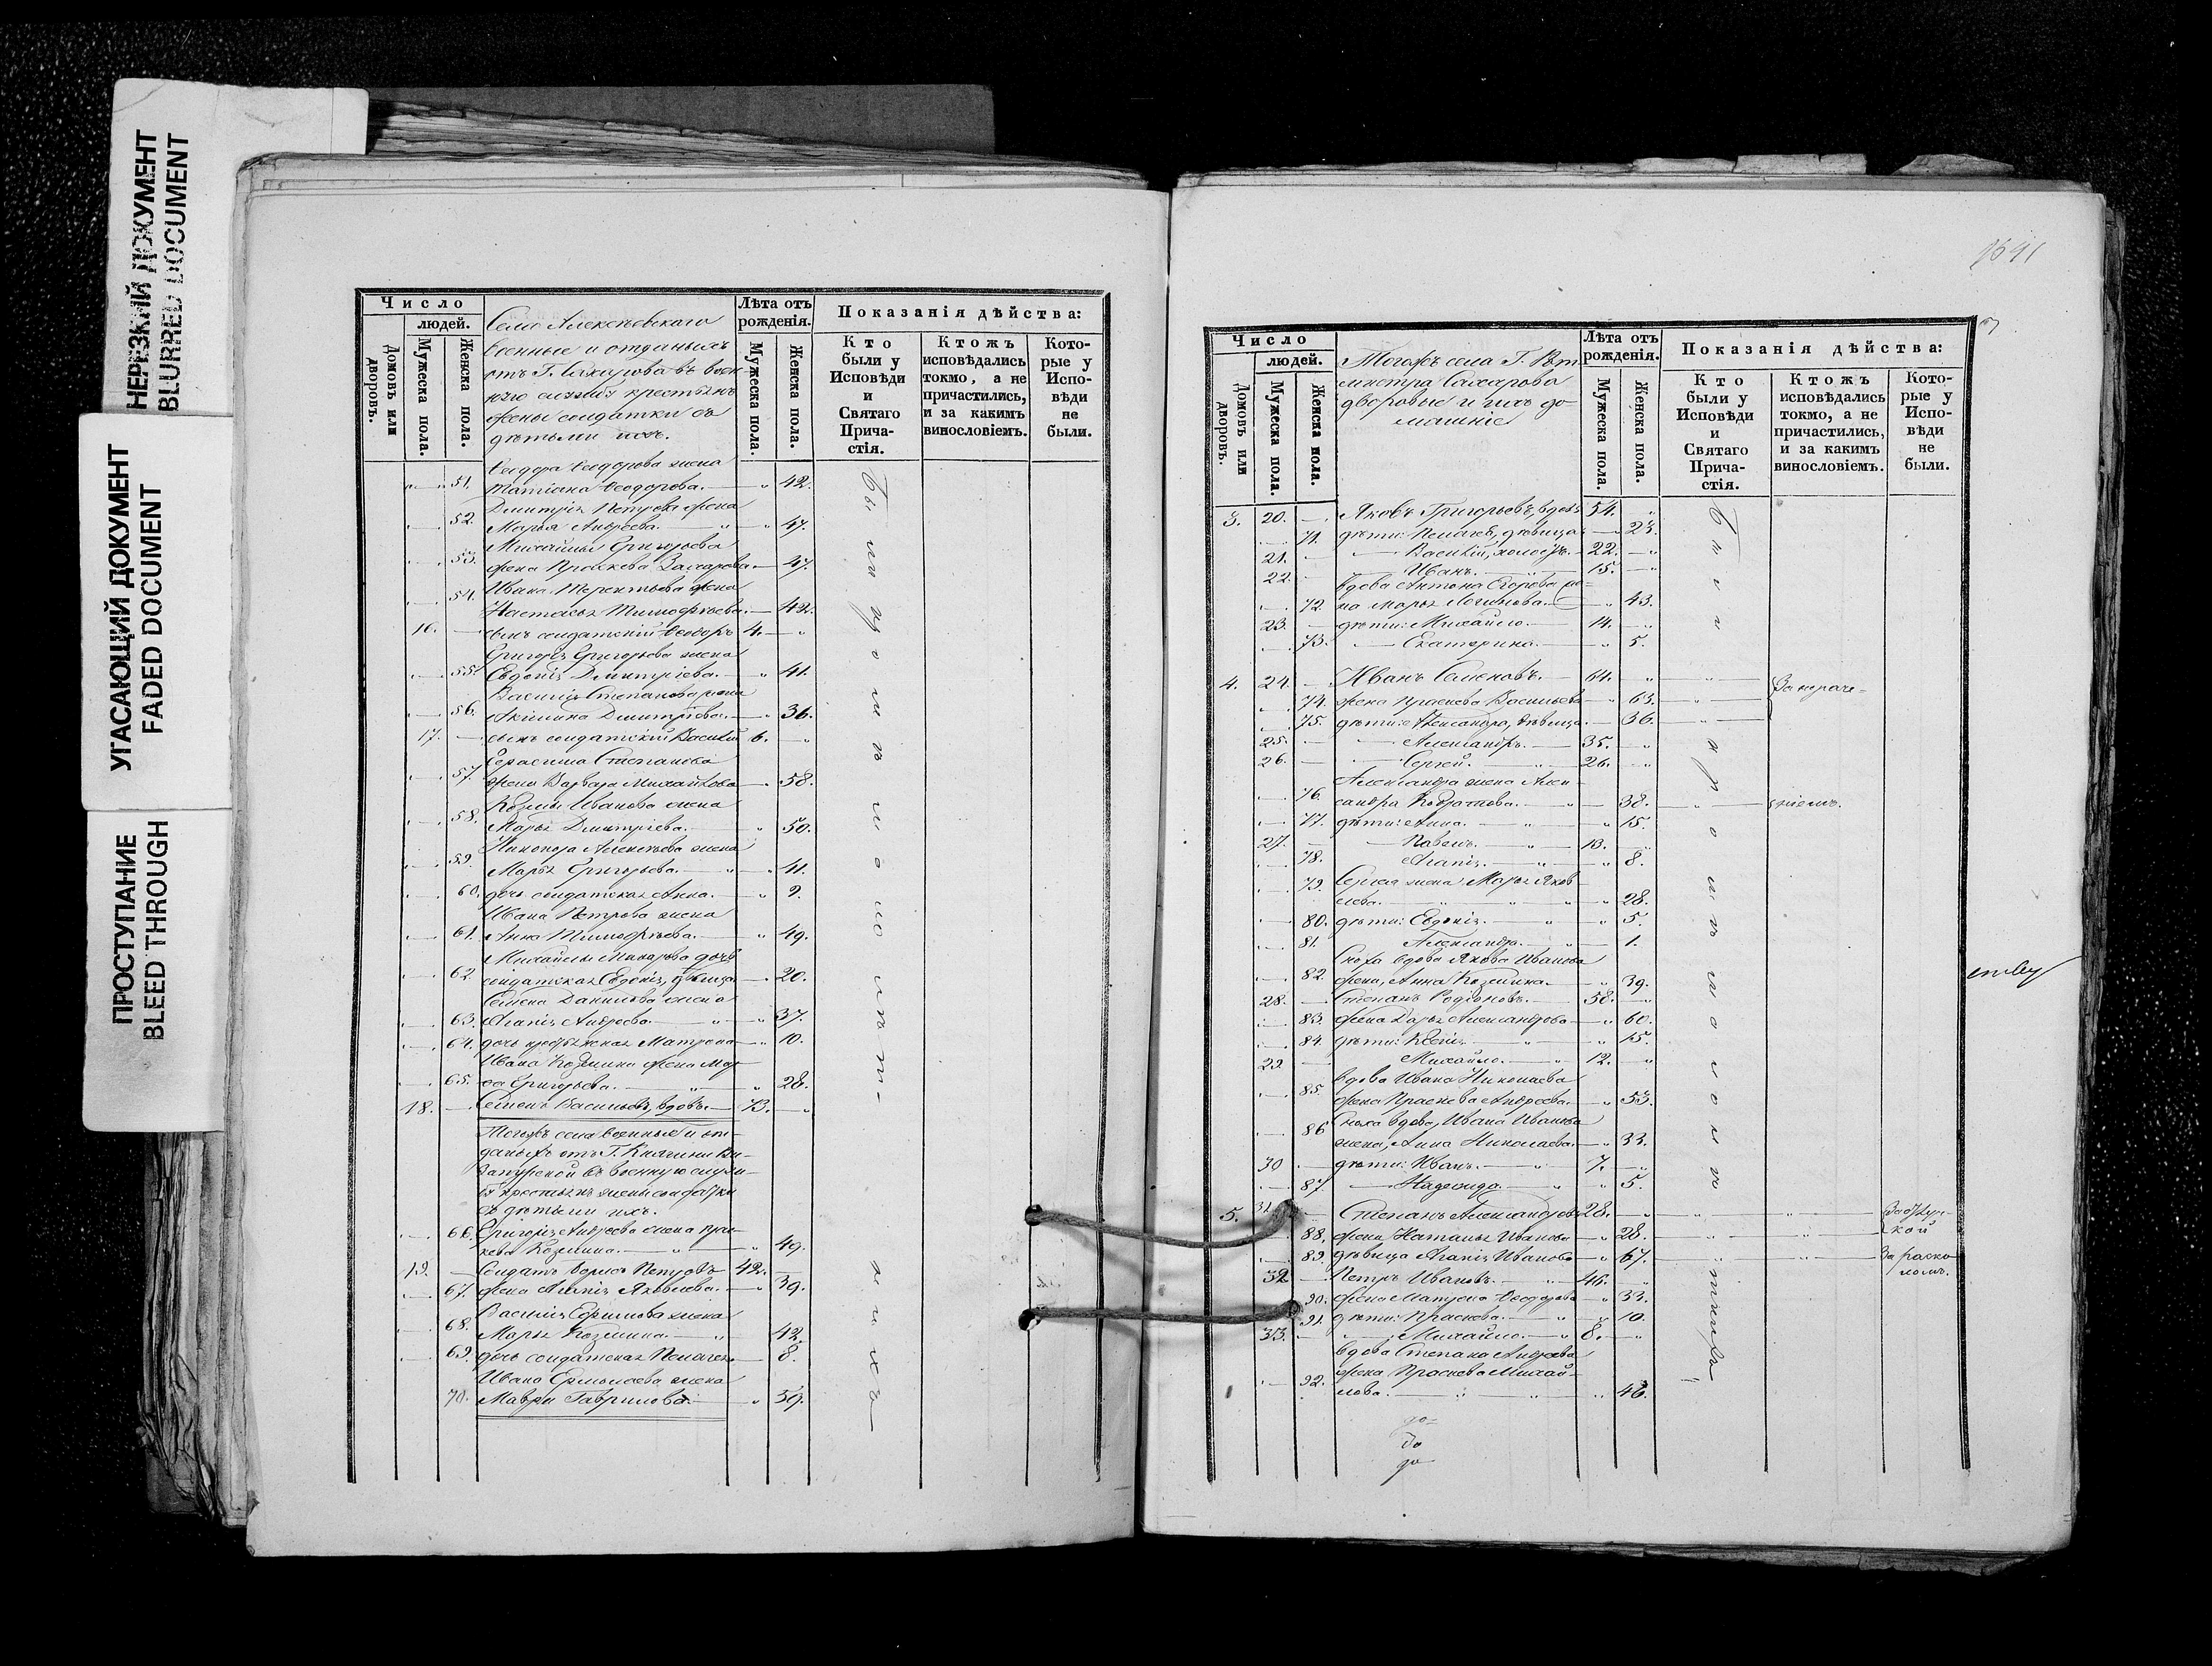 НЕРЕЗКИЙ ДОКУМЕНТ
BLURRED DOCUMENT
УГАСАЮЩИЙ ДОКУМЕНТ
FADED DOCUMENT
ПРОСТУПАНИЕ
BLEED THROUGH
Число
людей.
Домовъ или дворовъ.
Мужеска пола.
Женска пола.
Село Алексѣевскаго
военные и отданныхъ
отъ Г. Сахарова въ воен-
крестьянъ
жены солдатки съ
дѣтьми ихъ.
Лѣта отъ рожденія.
Мужеска пола.
Женска пола.
Показанія дѣйства:
Кто были у Исповѣди и Святаго Прича-стія.
Ктожъ исповѣдались токмо, а не причастились, и за какимъ винословіемъ.
Кото-рые у Испо-вѣди не были.
Ѳеодора Ѳеодорова жена
51. Татіана Ѳеодорова. 42.
Дмитрія Петрова жена
52. Марья Андреева. 47.
Михайлы Григорьева
53. жена Праскева Захарова. 47.
Ивана Терентьева жена
54. Настасья Тимофѣева. 42.
16. сынъ солдатскій Ѳеодоръ 4.
Григорія Григорьева жена
55. Евдокія Дмитріева. 41.
Василія Степанова жена
56. Акилина Дмитріева. 36.
17. сынъ солдатскій Василій 6.
Герасима Степанова
57. жена Варвара Михайлова 58.
Козмы Иванова жена
58. Марья Дмитріева. 50.
Никонора Алексѣева жена
59. Марья Григорьева. 41.
60. дочь солдатская Анна. 9.
Ивана Петрова жена
61. Анна Тимофѣева. 49.
Михайлы Макарова дочь
62. солдатская Евдокія, дѣвица 20.
Семена Данилова жена
63. Агапія Андреева. 37.
64. дочь Матрона 10.
Ивана Козмина жена Мар-
65. ѳа Григорьева. 28.
18. Семенъ Васильевъ, вдовъ. 73.
Тогожъ села военные и от-
даныхъ отъ Г. Княгини Ви-
запурской въ военную служ-
бу крестьянъ жены солдатки
съ дѣтьми ихъ.
66. Григорія Андреева жена Прас-
кева Козмина. 49.
19. Солдатъ Борисъ Петровъ 42.
67. жена Агапія Яковлева. 39.
Василія Ефимова жена
68. Марья Козмина. 42.
69. дочь солдатская Пелагея 8.
Ивана Ермолаева жена
70. Мавра Гаврилова. 39.
Были у
Число
людей.
Домовъ или дворовъ.
Мужеска пола.
Женска пола.
Тогожъ села Г. Рот-
мистра Сахарова
дворовые и ихъ до-
машніе
Лѣта отъ рожденія.
Мужеска пола.
Женска пола.
Показанія дѣйства:
Кто были у Исповѣди и Святаго Прича-стія.
Ктожъ исповѣдались токмо, а не причастились, и за какимъ винословіемъ.
Кото-рые у Испо-вѣди не были.
3. 20. Яковъ Григорьевъ, вдовъ 54.
71. дѣти: Пелагея, дѣвица. 23.
21. Василій, холостъ. 22.
22. Иванъ. 15.
вдова Антона Егорова же-
72. на Марья Логинова. 43.
23. дѣти: Михайло. 14.
73. Екатерина. 5.
4. 24. Иванъ Семеновъ. 64.
74. жена Праскева Васильева 63.
75. дѣти: Александра, дѣвица. 36.
25. Александръ. 35.
26. Сергей. 26.
Александра жена Алек-
76. сандра Кодратова. 38.
77. дѣти: Анна. 15.
27. Павелъ. 13.
78. Агапія. 8.
79. Сергея жена Марья Яков-
лева. 28.
80. дѣти: Евдокія. 5.
81. Александра. 1.
Сноха вдова Якова Иванова
82. жена, Анна Козмина. 39.
28. Степанъ Родіоновъ. 58.
83. жена Дарья Александрова 60.
84. дѣти: Ксенія 15.
29. Михайло. 12.
вдова Ивана Николаева
85. жена Праскева Андреева. 53.
Сноха вдова, Ивана Иванова
86 жена, Анна Николаева. 33.
30 дѣти: Иванъ. 7.
87. Надежда. 5.
5. 31. Степанъ Александровъ 28.
88. жена Наталья Иванова 28.
За отлуч-
кой
89. дѣвица Агапія Иванова 67.
За раско-
ломъ.
32 Петръ Ивановъ. 46.
90. жена Матрона Ѳеодорова 33.
91. дѣти: Праскева. 10.
33. Михайло. 8.
вдова Степана Андреева
92. жена Праскева Михай-
лова. 46.
до
до
до